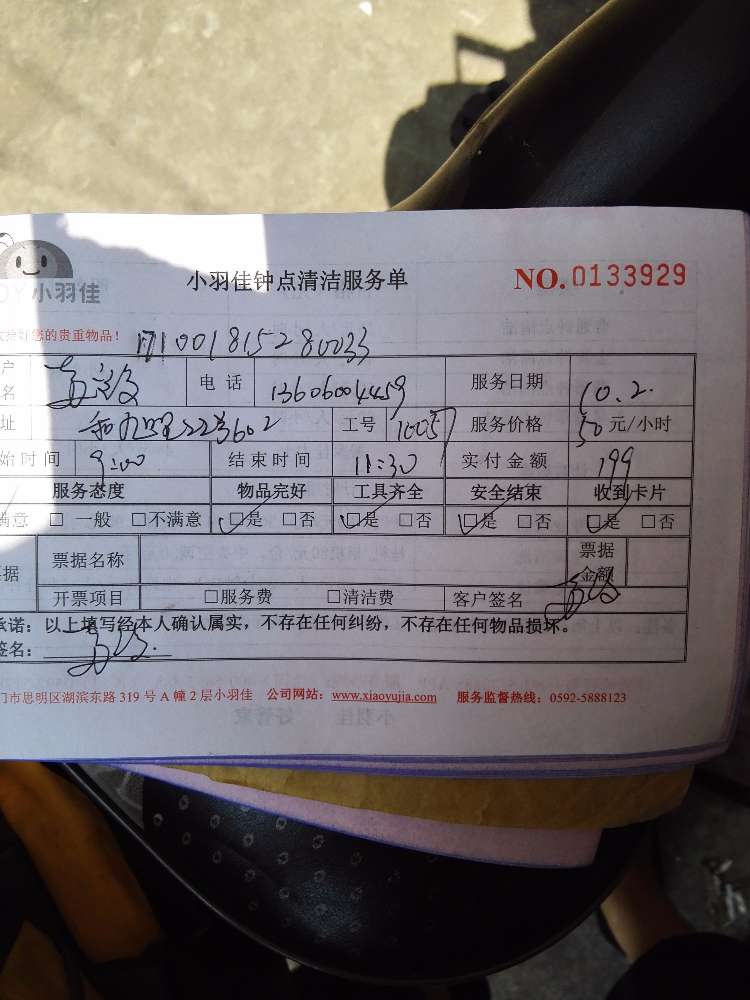 小羽佳钟点清洁服务单 NO. 0133929
小羽佳
好您的贵重物品!
1710018152 80033
户名 电话 13606004459 服务日期 10.2.
址 22号602 工号 1605 服务价格 50元/小时
始时间 9:00 结束时间 11:30 实付金额 199
服务态度 物品完好 工具齐全 安全结束 收到卡片
满意 □ 一般 □不满意 □是 □否 □是 □否 □是 □否 □是 □否
据 票据名称 票据金额
开票项目 □服务费 □清洁费 客户签名
承诺:以上填写经本人确认属实,不存在任何纠纷,不存在任何物品损坏。
签名:
门市思明区湖滨东路 319 号 A 幢 2 层小羽佳 公司网站:www.xiaoyujia.com 服务监督热线:0592-5888123